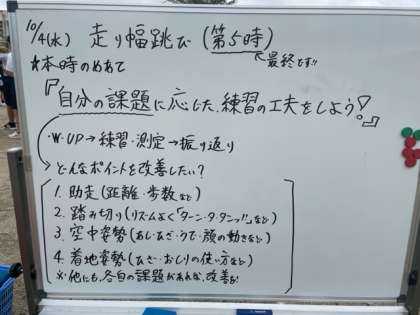 10/4(水) 走り幅跳び (第5時)
最終です!!
★本時のめあて
『自分の課題に応じた、練習の工夫をしよう!』
・W-UP→練習・測定→振り返り
→どんなポイントを改善したい?
1. 助走(距離・歩数など)
2. 踏み切り(リズムよく「ターン・タ・タンッ!」など)
3. 空中姿勢(あし・あご・うで・顔の動きなど)
4. 着地姿勢(ひざ・おしりの使い方など)
※他にも、各自の課題があれば、改善を